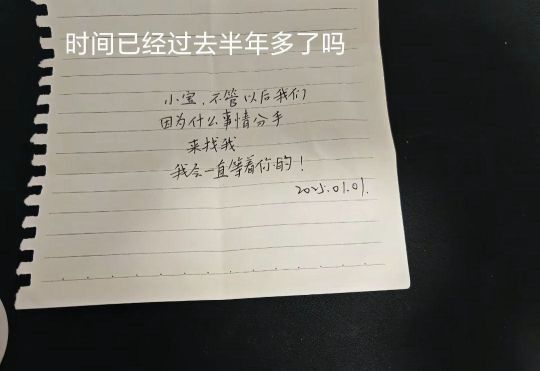 时间已经过去半年多了吗
小宝，不管以后我们
因为什么事情分手
来找我
我会一直等着你的！
2025.01.01.